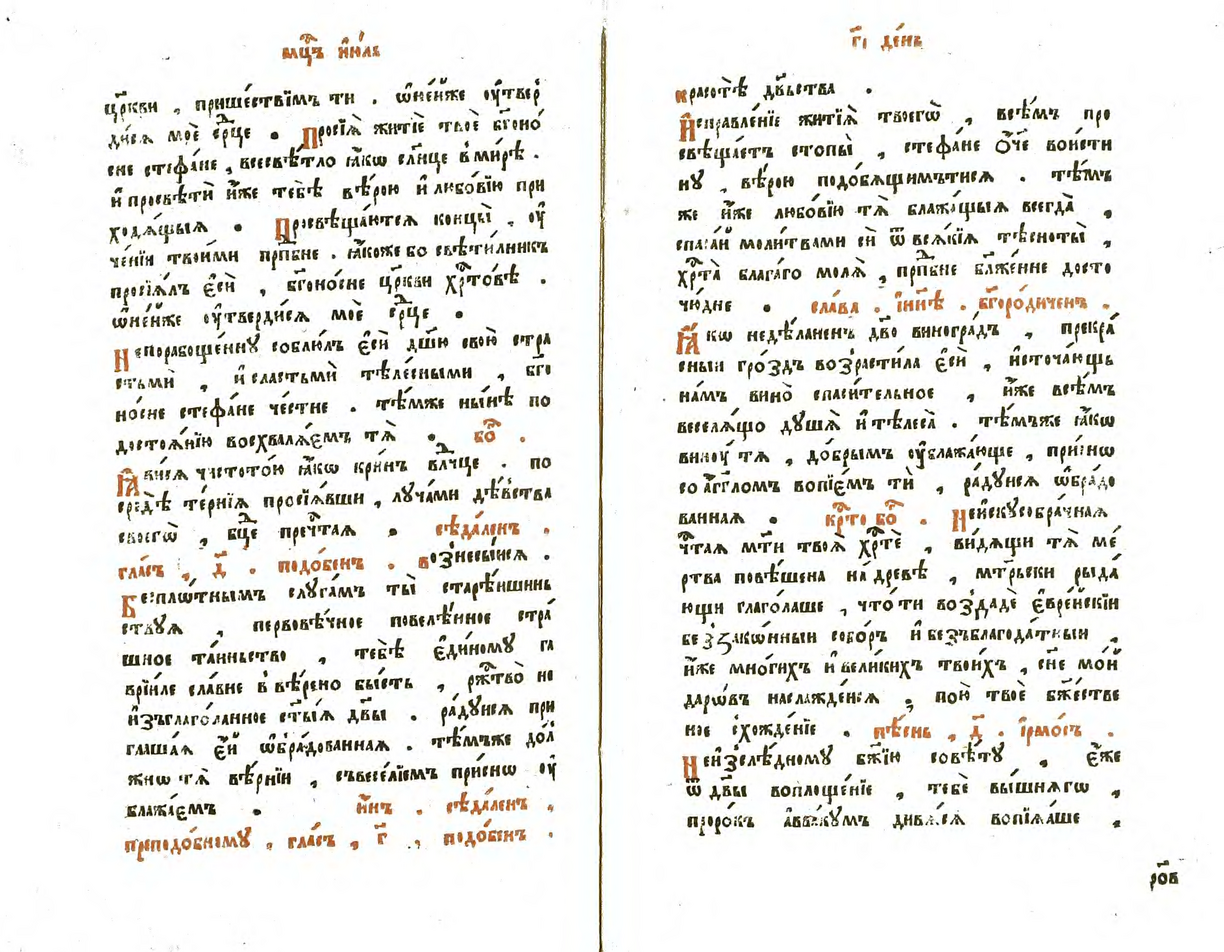 мцⷭ҇ъ і҆ю́ль
цр҃кви , прише́ствїимъ ти . ѡ҆не́йже ᲂу҆твер
ди́сѧ моѐ срⷣце . Просїѧ̀ житїѐ твоѐ бг҃оно́
сне стефа́не , всесвѣ́тло ꙗ҆́кѡ сл҃нце в҆ ми́рѣ .
и҆ просвѣтѝ и҆́же тебѣ̀ вѣ́рою и҆ любо́вїю при
ходѧ́щыѧ . Просвѣща́ютсѧ концы̀ , ᲂу҆
че́нїи твои́ми прпⷣбне . ꙗ҆́коже бо свѣти́лникъ
просїѧ́лъ є҆сѝ , бг҃оно́сне цр҃кви хрⷭ҇то́вѣ .
ѡ҆не́йже ᲂу҆тверди́сѧ моѐ срⷣце .
Непорабоще́ннꙋ соблю́лъ є҆сѝ дш҃ю свою̀ стра
стьмѝ , и҆ сластьмѝ тѣле́сными , бг҃о
но́сне стефа́не че́стне . тѣ́мже ны́нѣ по
достоѧ́нїю восхвалѧ́емъ тѧ̀ . бо҇ .
Ꙗ҆ви́сѧ чистото́ю ꙗ҆́кѡ кри́нъ влⷣчце . по
средѣ̀ те́рнїѧ просїѧ́вши , лꙋча́ми дѣ́вства
своегѡ̀ , бцⷣе пречⷭ҇таѧ . сѣда́ленъ .
гла́съ , д҃ . подо́бенъ . вознесы́исѧ .
Безпло́тнымъ слꙋга́мъ ты̀ старѣ́ишинь
ствꙋѧ , первовѣ́чное повелѣ́нное стра́
шное та́иньство , тебѣ̀ є҆ди́номꙋ га
врїи́ле сла́вне в҆вѣ́рено бы́сть , ржⷭ҇тво̀ не
и҆згл҃аго́ланное ст҃ы́ѧ дв҃ы . ра́дꙋисѧ при
глаша́ѧ є҆́й ѡ҆бра́дованнаѧ . тѣ́мъже до́л
жнѡ тѧ̀ вѣ́рнїи , съвесе́лїемъ при́снѡ ᲂу҆
блажа́емъ . и҆́нъ . сѣда́ленъ ,
преподо́бномꙋ , гла́съ , г҃ , подо́бенъ .
г҃і де́нь
красотѣ̀ дв҃ьства .
И҆справле́нїе житїѧ̀ твоегѡ̀ , всѣ́мъ про
свѣща́етъ стопы̀ , стефа́не ѻ҆́ч҃е вои́сти
нꙋ , вѣ́рою подобѧ́щимътисѧ . тѣ́мъ
же и҆́же любо́вїю тѧ̀ блажа́щыѧ всегда̀ ,
спаса́й моли́твами сѝ ѿ всѧ́кїѧ тѣсноты̀ ,
хрⷭ҇та̀ блага́го молѧ̀ , прпⷣбне бл҃же́нне досто
чю́дне . сла́ва . и҆ ны́нѣ . бг҃оро́диченъ .
Ꙗ҆́кѡ недѣ́ланенъ дв҃о виногра́дъ , прекра́
сныи гро́здъ возрасти́ла є҆сѝ , и҆сточа́ющь
на́мъ вино̀ спаси́тельное , и҆́же всѣ́мъ
веселѧ́що дꙋ́шѧ и҆ тѣлеса̀ . тѣ́мъже ꙗ҆́кѡ
винꙋ́ тѧ , до́брымъ ᲂу҆блажа́юще , при́снѡ
со а҆́гг҃ломъ вопїе́мъ тѝ , ра́дꙋисѧ ѡ҆бра́до
ваннаѧ . крⷭ҇то бо҇ . Неискꙋсобра́чнаѧ
чⷭ҇таѧ мт҃и твоѧ̀ хрⷭ҇тѐ , ви́дѧщи тѧ̀ ме́
ртва повѣ́шена на́ древѣ , мт҃рьски рыда́
ющи глаго́лаше , что́ ти воздадѐ є҆вре́йскїи
беззако́нныи собо́ръ и҆ безъблагода́тныи ,
и҆́же мно́гихъ и҆ вели́кихъ твои́хъ , сн҃е мо́й
даро́въ наслажде́нїѧ , пою̀ твоѐ бж҃е́стве
ное схожде́нїе . пѣ́снь , д҃ . і҆рмо́съ .
Неизслѣ́дномꙋ бж҃їю совѣ́тꙋ , є҆́же
ѿ дв҃ы воплоще́нїе , тебѐ вы́шнѧгѡ ,
проро́къ а҆вваку́мъ дивѧ́сѧ вопїѧ́аше ,
роⷡ